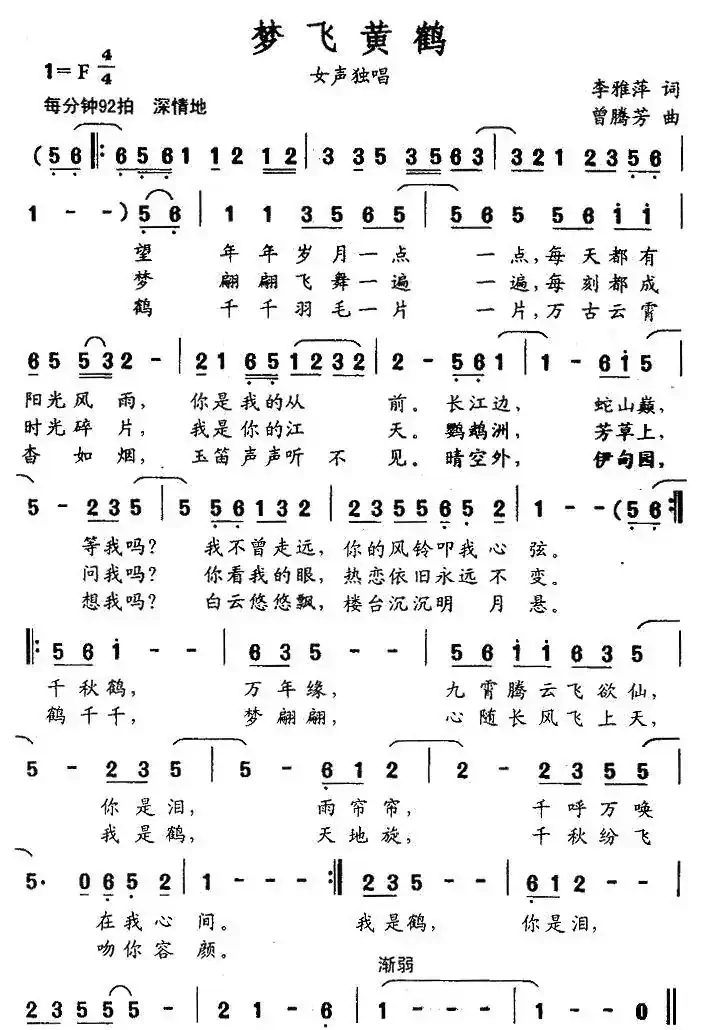 梦飞黄鹤
1=F 4/4
女声独唱
李雅萍 词
每分钟92拍 深情地
曾腾芳 曲
(5 6 |: 6 5 6 1 1 1 2 1 2 | 3 3 5 3 5 6 3 | 3 2 1 2 3 5 6 |
1 - - ) 5 6 | 1 1 3 5 6 5 | 5 6 5 5 6 i i |
望 年年岁月一点 一点,每天都有
梦 翩翩飞舞一遍 一遍,每刻都成
鹤 千千羽毛一片 一片,万古云霄
6 5 5 3 2 - | 2 1 6 5 1 2 3 2 | 2 - 5 6 1 | 1 - 6 i 5 |
阳光风雨, 你是我的从 前。长江边, 蛇山巅,
时光碎片, 我是你的江 天。鹦鹉洲, 芳草上,
杳如烟, 玉笛声声听不 见。晴空外, 伊甸园,
5 - 2 3 5 | 5 5 6 1 3 2 | 2 3 5 5 6 5 2 | 1 - - (5 6 :|
等我吗? 我不曾走远, 你的风铃叩我心弦。
问我吗? 你看我的眼, 热恋依旧永远不变。
想我吗? 白云悠悠飘, 楼台沉沉明月悬。
|: 5 6 i - | 6 3 5 - - | 5 6 i i 6 3 5 |
千秋鹤, 万年缘, 九霄腾云飞欲仙,
鹤千千, 梦翩翩, 心随长风飞上天,
5 - 2 3 5 | 5 - 6 1 2 | 2 - 2 3 5 5 |
你是泪, 雨帘帘, 千呼万唤
我是鹤, 天地旋, 千秋纷飞
5· 0 6 5 2 | 1 - - - :| 2 3 5 - - | 6 1 2 - - |
在我心间。 我是鹤, 你是泪,
吻你容颜。
渐弱
2 3 5 5 5 - | 2 1 - 6 | 1 - - - | 1 - - 0 ||